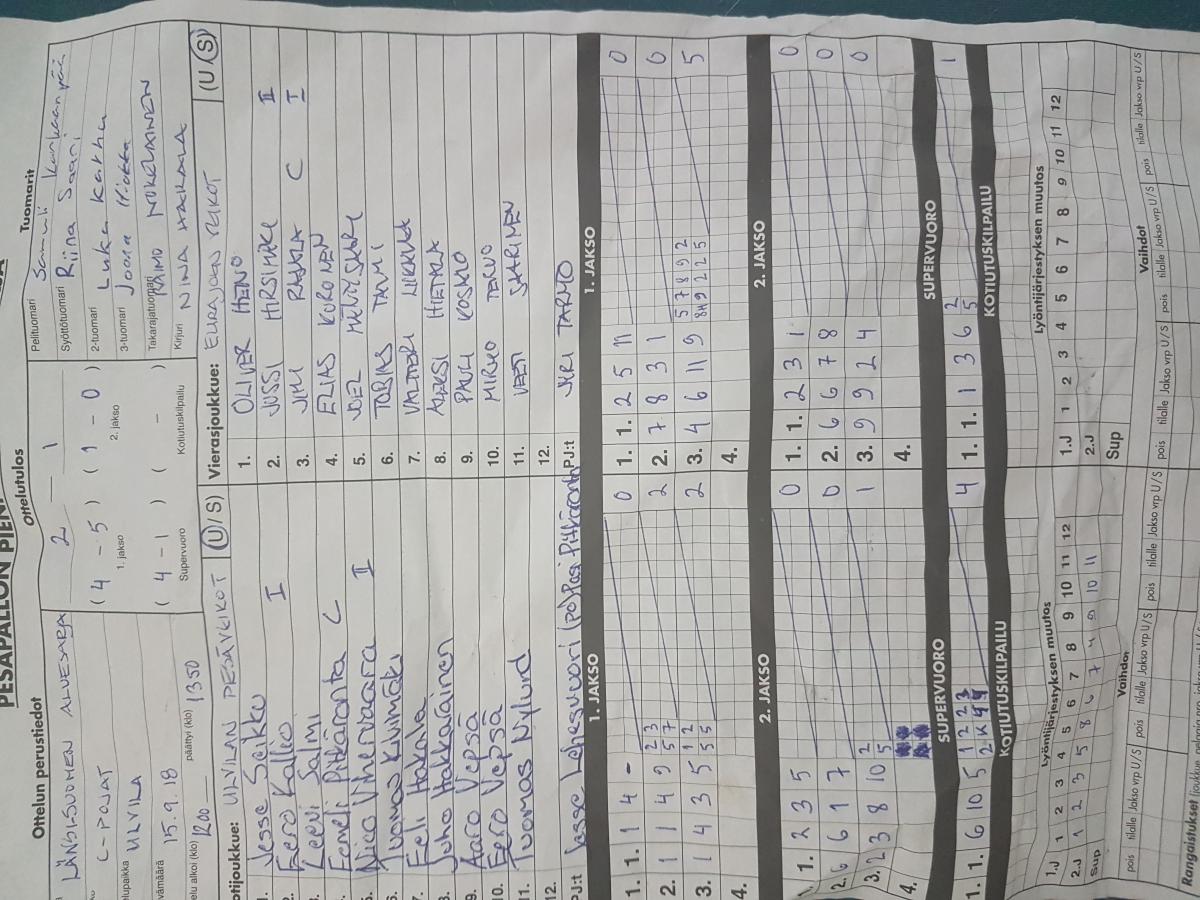 PESÄPALLON PIENI
Ottelun perustiedot
LÄNSI-SUOMEN ALUESARJA
C-POJAT
ULVILA
15.9.18
1200
päättyi (klo) 1350
Ottelutulos
2 1
( 4 - 5 ) ( 1 - 0 )
1. jakso 2. jakso
( 4 - 1 ) ( - )
Supervuoro Kotiutuskilpailu
Tuomarit
Pelituomari Samuli Kankaanpää
Syöttötuomari Riina Saari
2-tuomari Luka Karha
3-tuomari Joona
Takarajatuomari RAIMO
Kirjuri NINA HAKKALA
ULVILAN PESÄVEIKOT (U/S)
Jesse Seikku
2. Eero Kallio I
Leevi Salmi
Eemeli Pitkäranta C
5. Nico Viherivaara II
6. Tuomas Kivimäki
7. Eeli Hakala
8. Juho Hakkalainen
9. Aaro Vepsä
10. Eero Vepsä
11. Tuomas Nylund
12.
PJ:t Jesse Lehesvuori (po) Pasi Pitkäranta
Vierasjoukkue: EURAJOEN VEIKOT (U/S)
1. OLIVER HEINO
2. JUSSI HIRSIMÄKI II
3. JIMI RAJALA C I
4. ELIAS KORONEN
5. JOEL
6. TOBIAS TAMMI
7. VALTTERI
8. ALEKSI HIETALA
9. PAULI KOSKLO
10. MIRKO TERVO
11. VEETI SAARINEN
12.
PJ:t JYRI TARMO
1. JAKSO
1. 1. 1 4 - 0
2. 1 1 4 9 2 3 5 7 2
3. 1 4 3 5 1 2 5 5 2
4.
1. JAKSO
1. 1. 2 5 11 0
2. 7 8 3 1 0
3. 4 6 11 9 5 7 8 9 2 5
4.
2. JAKSO
1. 2 3 5 0
2. 6 6 1 7 0
3. 2 3 8 10 2 5 1
4.
2. JAKSO
1. 1. 2 3 1 0
2. 6 6 7 8 0
3. 9 9 2 4 0
4.
SUPERVUORO
1. 1. 6 10 5 1 2 2 3 4
SUPERVUORO
1. 1. 1 3 6 2 5 1
KOTIUTUSKILPAILU
KOTIUTUSKILPAILU
Lyöntijärjestyksen muutos
1.J 1 2 3 4 5 6 7 8 9 10 11 12
2.J 1 2 3 5 8 6 7 4 9 10 11
Sup
Lyöntijärjestyksen muutos
1.J 1 2 3 4 5 6 7 8 9 10 11 12
2.J
Sup
Vaihdot
pois tilalle Jakso vrp U/S pois tilalle Jakso vrp U/S pois tilalle Jakso vrp U/S
Vaihdot
pois tilalle Jakso vrp U/S pois tilalle Jakso vrp U/S pois tilalle Jakso vrp U/S
Rangaistukset